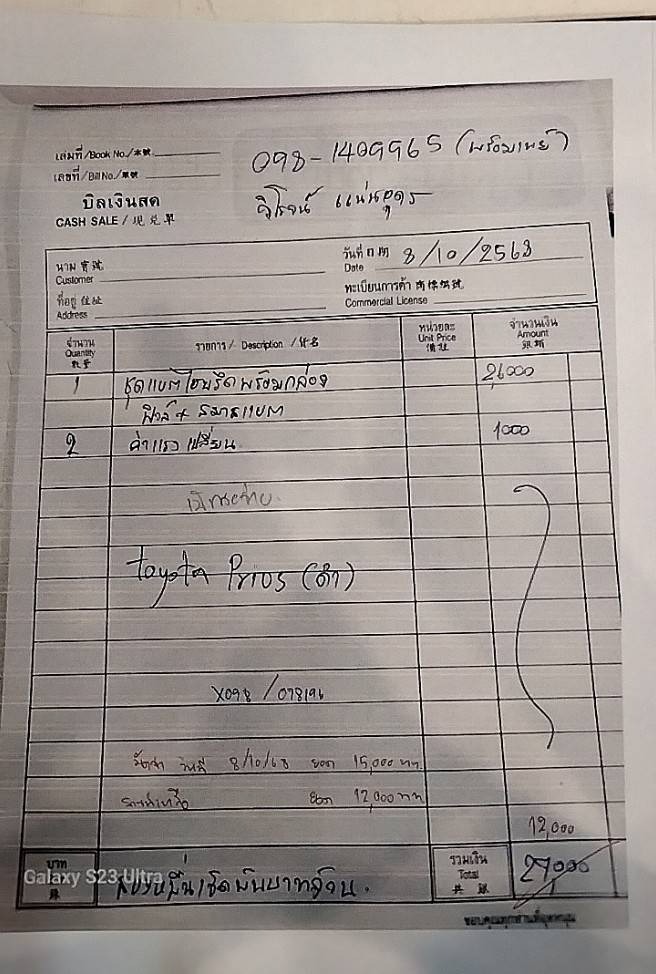 เล่มที่/Book No./本號
098-1409965 (พร้อมเพย์)
เลขที่/Bill No./單號
บิลเงินสด
วิโรจน์ แน่นอุดร
CASH SALE / 現兌單
นาม 寶號
Customer
วันที่ 日期 8/10/2568
Date
ที่อยู่ 住址
Address
ทะเบียนการค้า 商標號
Commercial License
จำนวน
Quantity
數量
รายการ / Description / 什名
หน่วยละ
Unit Price
價址
จำนวนเงิน
Amount
銀
1 ชุดแบตไฮบริดพร้อมกล่อง 26000
ฟิวส์ + สมาทแบต
2 ค่าแรง เปลี่ยน 1000
toyota Prios (ดำ)
X098 / 078196
วันที่ 8/10/68 ยอด 15,000 บาท
ยอด 12,000 บาท
12,000
บาท
สองหมื่นเจ็ดพันบาทถ้วน.
รวมเงิน
Total
共 銀
27000
Galaxy S23 Ultra
ขอบคุณทุกท่านที่อุดหนุน